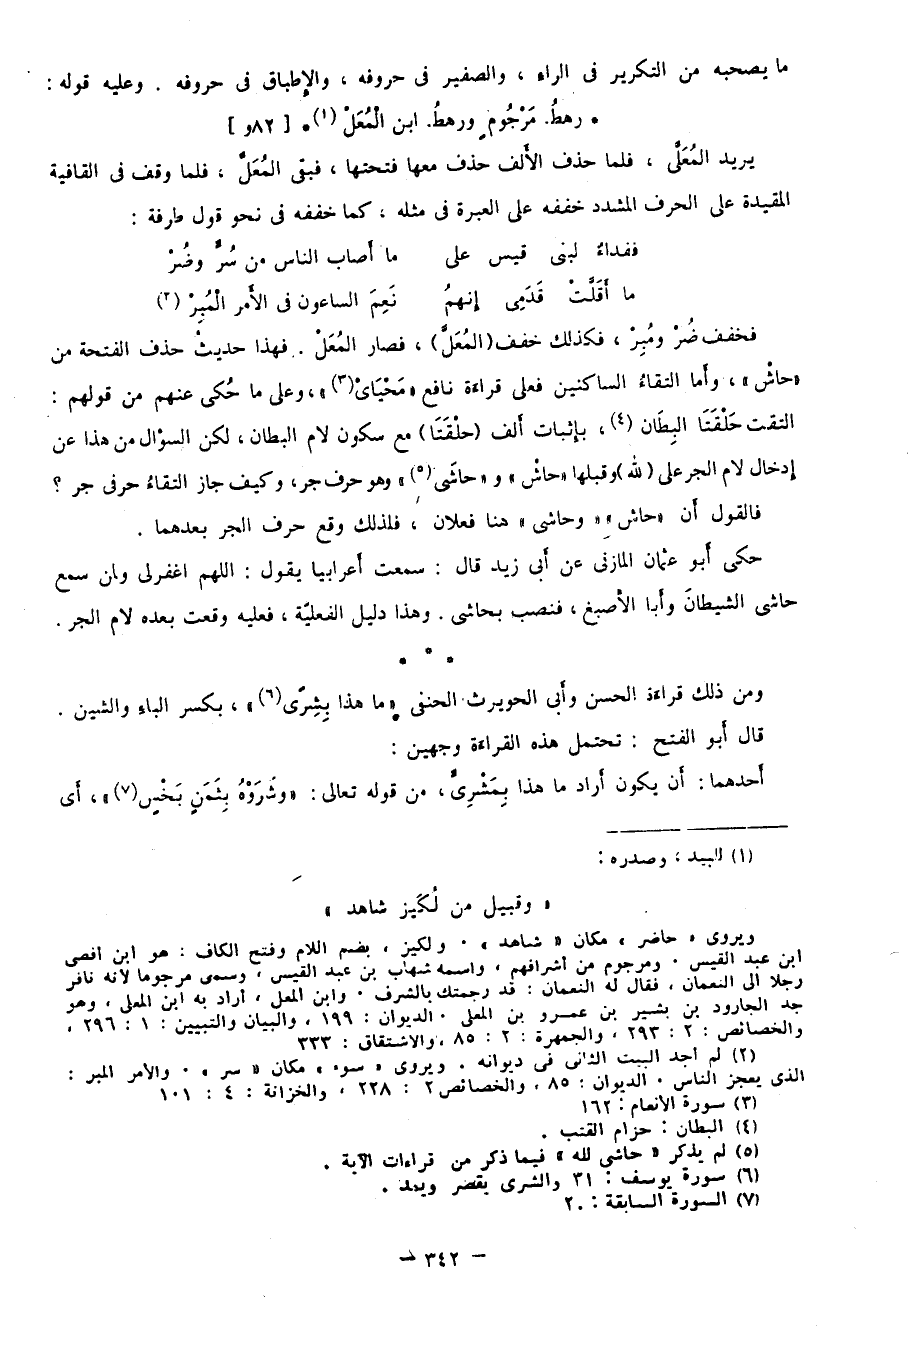 ما يصحبه من التكرير فى الراء ، والصفير فى حروفه ، والإطباق فى حروفه . وعليه قوله :
* رهطُ مَرْجُومٍ ورهطُ ابن الْمُعَلْ (١) * [ ٨٢و ]
يريد المُعَلَّى ، فلما حذف الألف حذف معها فتحتها ، فبقى المُعَلَّ ، فلما وقف فى القافية
المقيدة على الحرف المشدد خففه على العبرة فى مثله ، كما خففه فى نحو قول طرفة :
ففداءٌ لبنى قيس على ما أصاب الناس من سُرٍّ وضُرْ
ما أَقَلَّتْ قَدَمِى إنهمُ نَعِمَ الساعون فى الأَمر الْمُبِرْ (٢)
فخفف ضُرْ ومُبِرْ ، فكذلك خفف (المُعَلَّ) ، فصار المُعَلْ . فهذا حديثُ حذف الفتحة من
«حاشْ» ، وأما التقاءُ الساكنين فعلى قراءة نافع «مَحْيَاىْ (٣)» ، وعلى ما حُكى عنهم من قولهم :
التقت حَلْقَتَا البِطَان (٤) ، بإثبات ألف (حلْقَتَا) مع سكون لام البطان ، لكن السؤال من هذا عن
إدخال لام الجر على (لله) وقبلها «حاش» و «حاشَى (٥)» وهو حرف جر ، وكيف جاز التقاءُ حرفى جر ؟
فالقول أن «حاش» «وحاشى» هنا فعلان ، فلذلك وقع حرف الجر بعدهما .
حكى أبو عثمان المازنى عن أبى زيد قال : سمعت أعرابيا يقول : اللهم اغفرلى ولمن سمع
حاشى الشيطانَ وأبا الأصبغ ، فنصب بحاشى . وهذا دليل الفعليّة ، فعليه وقعت بعده لام الجر .
* * *
ومن ذلك قراءة الحسن وأبى الحويرث الحنفى «ما هذا بِشِرًى (٦)» ، بكسر الباء والشين .
قال أبو الفتح : تحتمل هذه القراءة وجهين :
أحدهما : أن يكون أراد ما هذا بِمَشْرِىٍّ ، من قوله تعالى : «وشَرَوْهُ بِثَمَنٍ بَخْسٍ (٧)» ، أى
(١) للبيد ، وصدره :
« وقبيل من لُكَيز شاهد »
ويروى « حاضر » مكان « شاهد » . ولكيز ، بضم اللام وفتح الكاف : هو ابن أفصى
ابن عبد القيس . ومرجوم من أشرافهم ، واسمه شهاب بن عبد القيس ، وسمى مرجوما لأنه نافر
رجلا الى النعمان ، فقال له النعمان : قد رجمتك بالشرف . وابن المعل ، أراد به ابن المعلى ، وهو
جد الجارود بن بشير بن عمرو بن المعلى . الديوان : ١٩٩ ، والبيان والتبيين : ١ : ٢٩٦ ،
والخصائص : ٢ : ٢٩٣ ، والجمهرة : ٢ : ٨٥ ، والاشتقاق : ٣٣٣
(٢) لم أجد البيت الثانى فى ديوانه . ويروى « سوء » مكان « سر » . والأمر المبر :
الذى يعجز الناس . الديوان : ٨٥ ، والخصائص ٢ : ٢٢٨ ، والخزانة : ٤ : ١٠١
(٣) سورة الأنعام : ١٦٢
(٤) البطان : حزام القتب .
(٥) لم يذكر « حاشى لله » فيما ذكر من قراءات الآية .
(٦) سورة يوسف : ٣١ والشرى يقصر ويمد .
(٧) السورة السابقة : ٢٠
– ٣٤٢ –